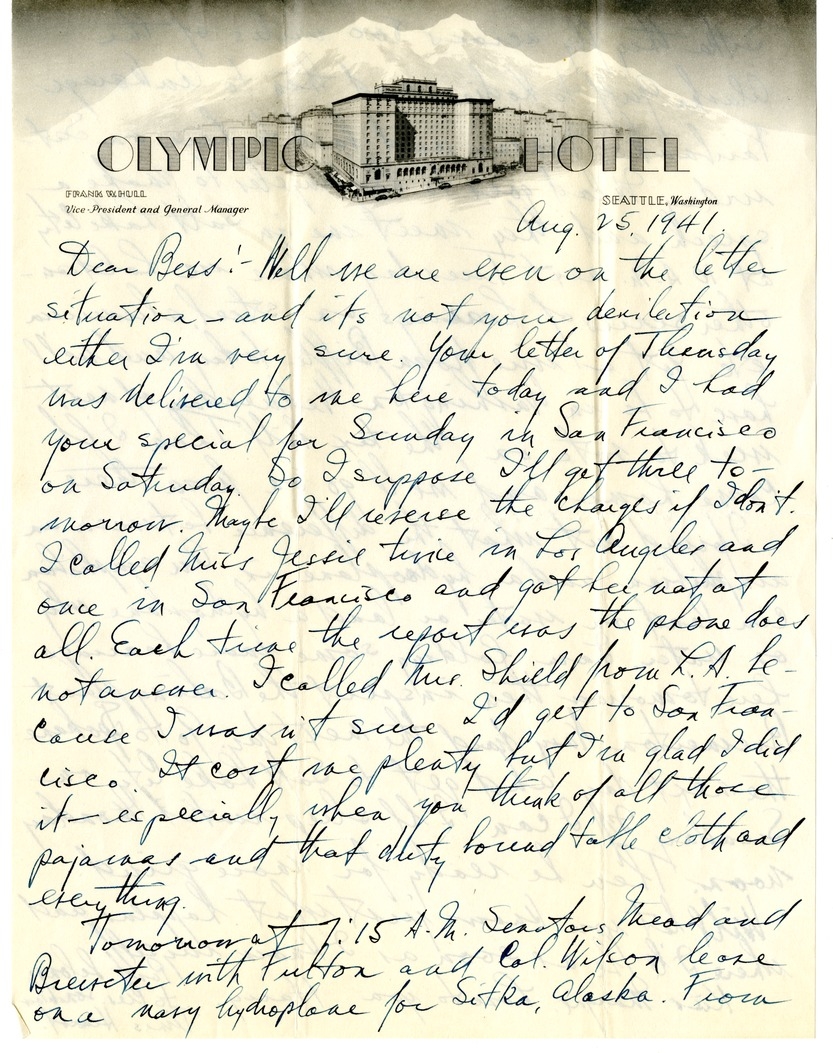 OLYMPIC HOTEL
FRANK W. HULL
Vice-President and General Manager
SEATTLE, Washington
Aug. 25, 1941.
Dear Bess:- Well we are even on the letter
situation - and its not your derilection
either I'm very sure. Your letter of Thursday
was delivered to me here today and I had
your special for Sunday in San Francisco
on Saturday. So I suppose I'll get three to-
morrow. Maybe I'll reverse the charges if I don't.
I called Miss Jessie twice in Los Angeles and
once in San Francisco and got her not at
all. Each time the report was the phone does
not answer. I called Mrs. Shield from L.A. be-
cause I wasn't sure I'd get to San Fran-
cisco. It cost me plenty but I'm glad I did
it - especially when you think of all those
pajamas - and that duty bound table cloth and
everything.
Tomorrow at 7:15 A.M. Senators Mead and
Brewster with Fulton and Col. Wilson leave
on a navy hydroplane for Sitka, Alaska. From